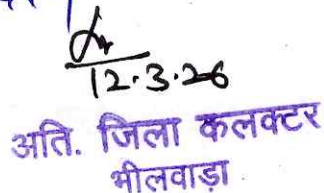 12.3.26
अति. जिला कलक्टर
भीलवाड़ा